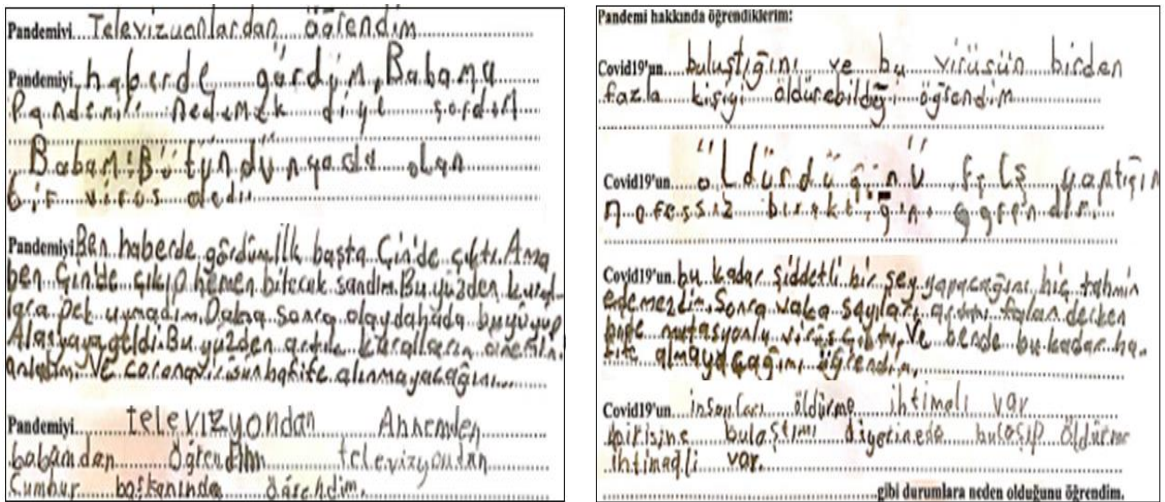 Pandemiyi Televizuonlardan öğrendim
Pandemiyi haberde gördüm, Babama
Pandemi nedemek diye sordum
Babam: Bütün dünyada olan
bir virüs dedi
Pandemiyi Ben haberde gördüm. İlk başta Çin'de çıktı. Ama
ben Çin'de çıkıp hemen bitecek sandım. Bu yüzden kural-
lara pek uymadım. Daha sonra olay dahada büyüyüp
Alasyaya geldi. Bu yüzden artık kuralların önemini
anladım. Ve coronavirüsün hafife alınmayacağını....
Pandemiyi televizyondan Annemden
babamdan öğrendim televizyondan
Cumhur başkanında öğrendim.
Pandemi hakkında öğrendiklerim:
Covid19'un buluştığını ve bu virüsün birden
fazla kişiyi öldürebildiği öğrendim
Covid19'un öldürdüğünü felş yaptığın
nofessiz bıraktığını öğrendim.
Covid19'un bu kadar şiddetli bir şey yapacağını hiç tahmin
edemezdim. Sonra vaka sayıları arttı falan derken
birde mutasyonlu virüs çıktı. Ve bende bu kadar ha-
fife almayacağımı öğrendim.
Covid19'un insanları öldürme ihtimali var
birisine bulaştımı diyerinede bulaşıp öldürme
ihtimali var.
gibi durumlara neden olduğunu öğrendim.